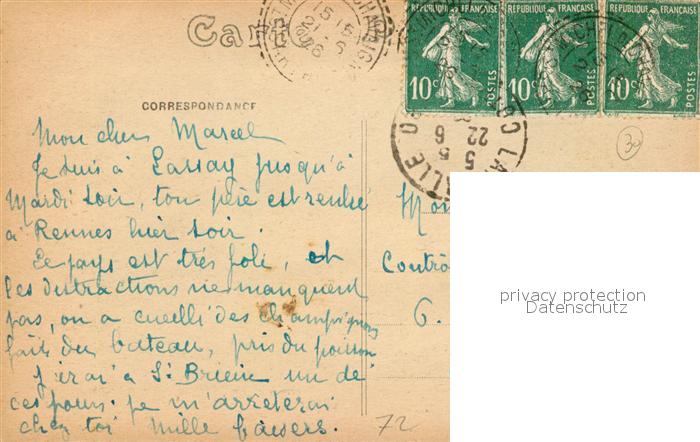 Carte
RÉPUBLIQUE FRANÇAISE
10c POSTES
RÉPUBLIQUE FRANÇAISE
10c POSTES
RÉPUBLIQUE FRANÇAISE
10c
15 15
21 - 6
5 5
22 6
30
CORRESPONDANCE
Mon cher Marcel
Je suis à Lassay jusqu'à
Mardi soir, ton père est rentré
à Rennes hier soir.
Ce pays est très joli, et
les distractions ne manquent
pas, on a cueilli des champignons
fait du bateau, pris du poisson
J'irai à St Brieuc un de
ces jours. je m'arrêterai
chez toi Mille baisers.
Contrô
6.
72
privacy protection
Datenschutz